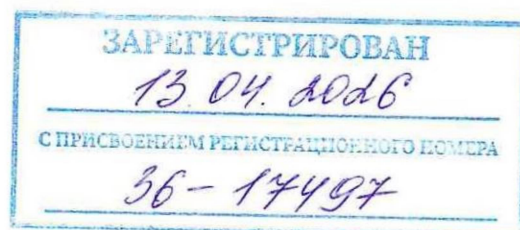 ЗАРЕГИСТРИРОВАН
13.04.2026
С ПРИСВОЕНИЕМ РЕГИСТРАЦИОННОГО НОМЕРА
36-17497